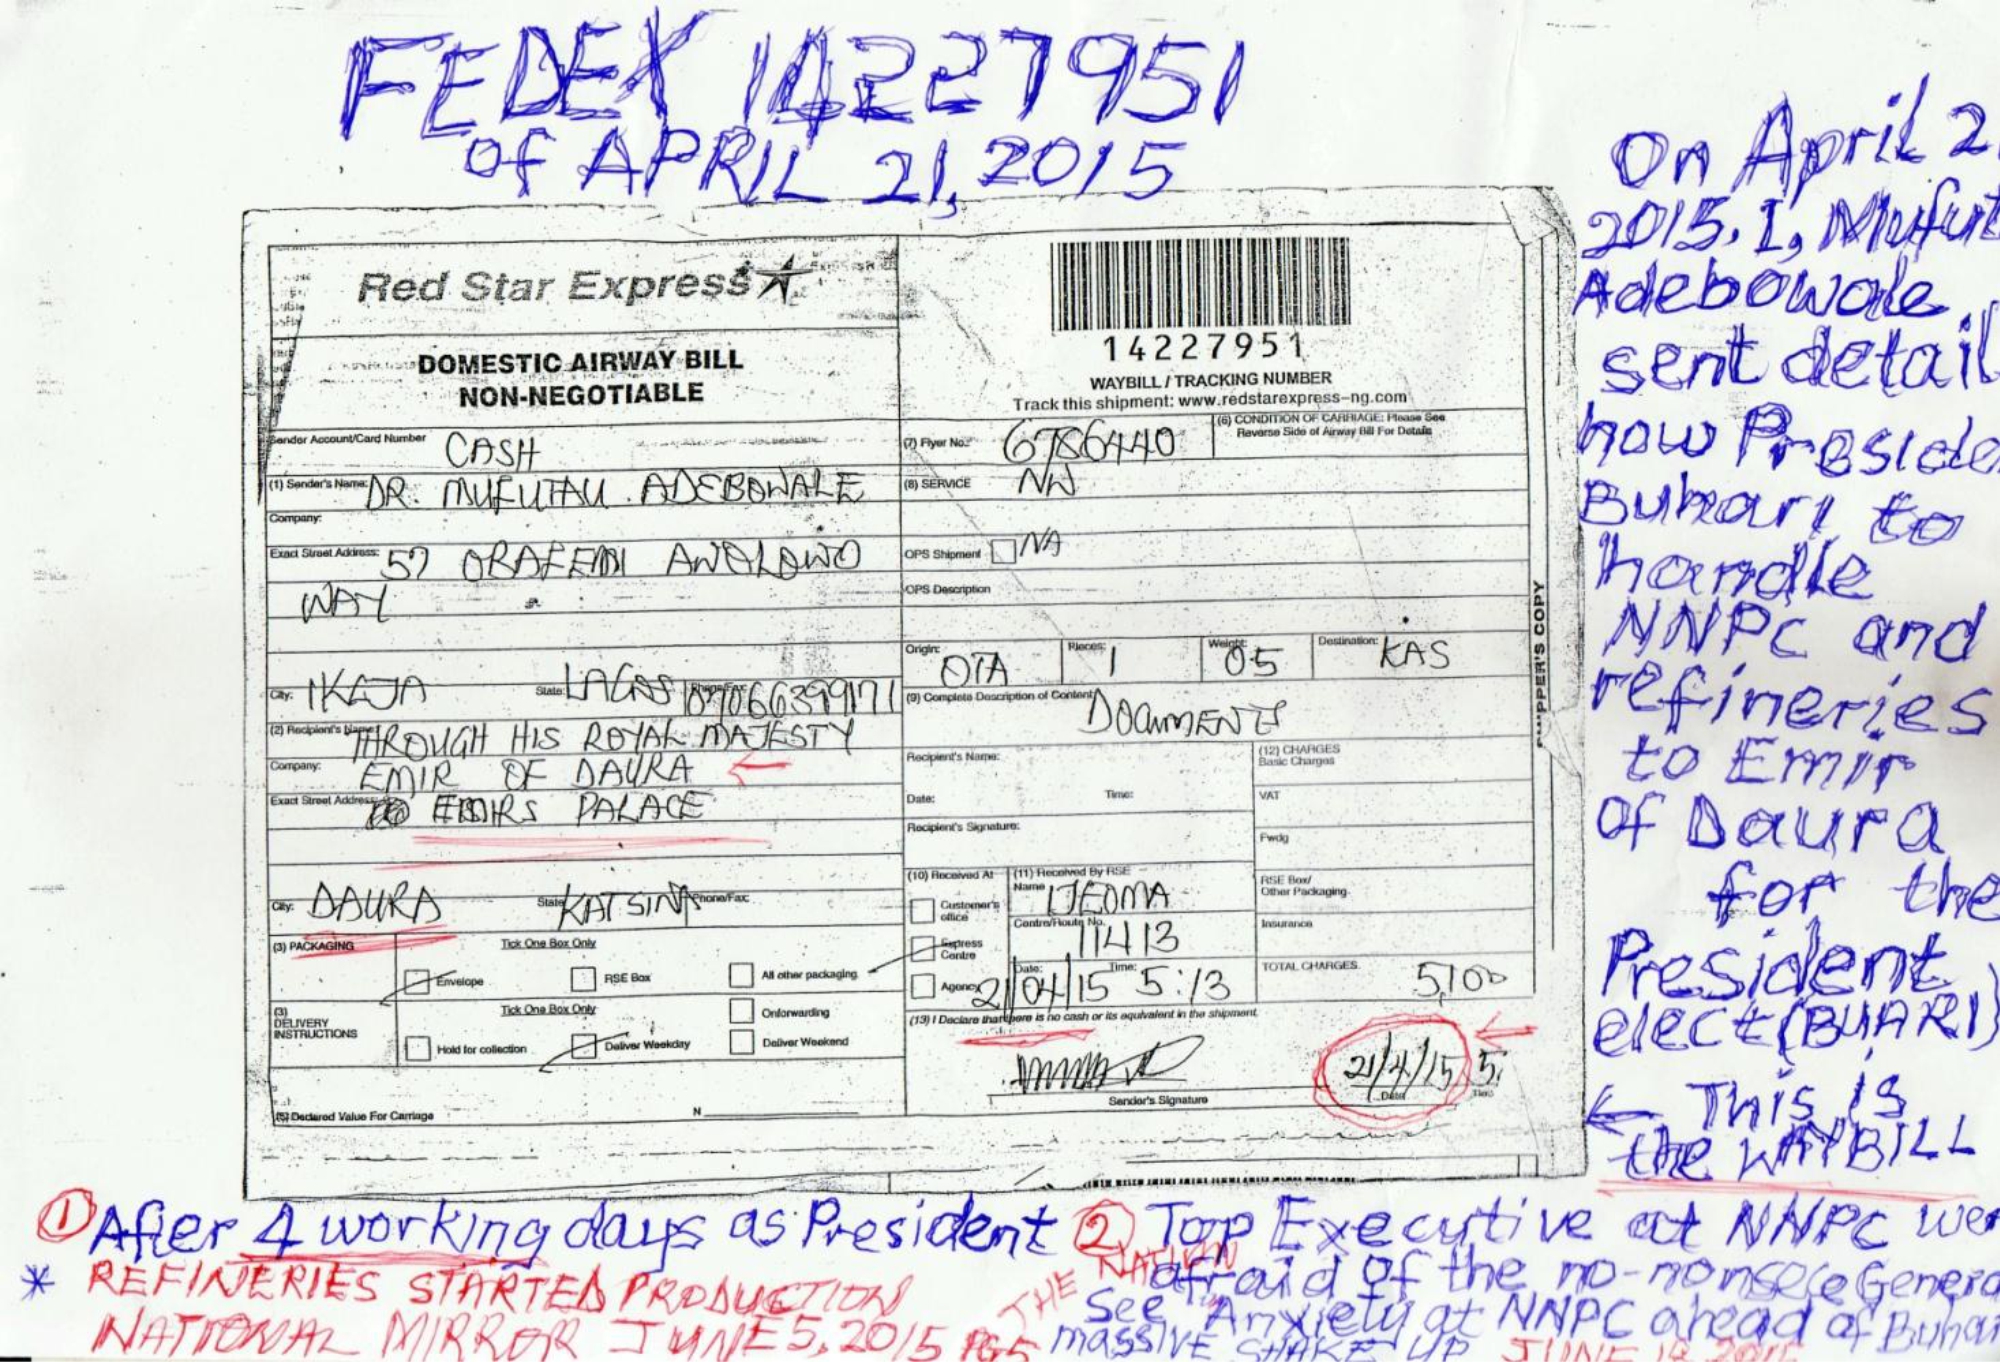 FEDEX 14227951
of APRIL 21, 2015
Red Star Express
DOMESTIC AIRWAY BILL
NON-NEGOTIABLE
14227951
WAYBILL / TRACKING NUMBER
Track this shipment: www.redstarexpress-ng.com
Sender Account/Card Number CASH
(7) Flyer No.: 6786440
(6) CONDITION OF CARRIAGE: Please See
Reverse Side of Airway Bill For Details
(1) Sender's Name: DR. MUFUTAU ADEBOWALE
(8) SERVICE NW
Company:
Exact Street Address: 57 OBAFEMI AWOLOWO
WAY
OPS Shipment NA
OPS Description
Origin: OTA
Pieces: 1
Weight: 05
Destination: KAS
City: IKEJA State: LAGOS Phone/Fax:
(9) Complete Description of Content DOCUMENTS
(2) Recipient's Name: THROUGH HIS ROYAL MAJESTY
Company: EMIR OF DAURA
Exact Street Address: EMIRS PALACE
City: DAURA State: KATSINA Phone/Fax:
Recipient's Name:
Date: Time:
Recipient's Signature:
(12) CHARGES
Basic Charges
VAT
Fwdg
RSE Box/
Other Packaging
Insurance
TOTAL CHARGES 5,100
(10) Received At
Customer's
office
Express
Centre
Agency
(11) Received By RSE
Name IJEOMA
Centre/Route No. 11413
Date: 21/04/15 Time: 5:13
(3) PACKAGING
Tick One Box Only
Envelope
RSE Box
All other packaging
(3)
DELIVERY
INSTRUCTIONS
Tick One Box Only
Onforwarding
Hold for collection
Deliver Weekday
Deliver Weekend
(13) I Declare that there is no cash or its equivalent in the shipment.
21/4/15 5:
Sender's Signature
Date
Time
(5) Declared Value For Carriage N
SHIPPER'S COPY
On April 2
2015. I, Mufut
Adebowale
sent detail
how Preside
Buhari to
handle
NNPC and
refineries
to Emir
of Daura
for the
President
elect (BUHARI)
← This is
the WAYBILL
① After 4 working days as President
* REFINERIES STARTED PRODUCTION
NATIONAL MIRROR JUNE 5, 2015 PG5
② Top Executive at NNPC wer
afraid of the no-nonsece Genera
THE NATION
See "Anxiety at NNPC ahead of Buhar
massIVE SHAKE UP JUNE